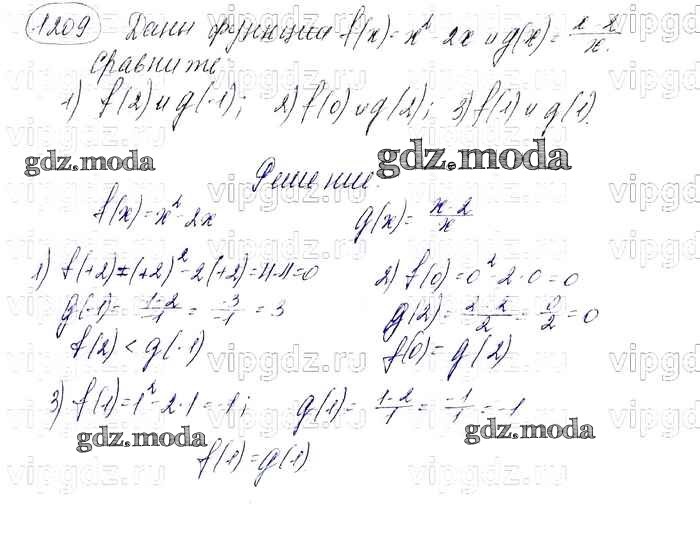 1209 Даны функции f(x)=x²-2x и g(x)=\frac{x-2}{x}.
сравните
1) f(2) и g(-1); 2) f(0) и g(2); 3) f(1) и g(1).
gdz.moda gdz.moda
Решение.
f(x)=x²-2x g(x)=\frac{x-2}{x}
1) f(+2)=(+2)²-2(+2)=4-4=0 2) f(0)=0²-2·0=0
g(-1)=\frac{-1-2}{-1}=\frac{-3}{-1}=3 g(2)=\frac{2-2}{2}=\frac{0}{2}=0
f(2)<g(-1) f(0)=g(2)
3) f(1)=1²-2·1=-1; g(1)=\frac{1-2}{1}=\frac{-1}{1}=-1
gdz.moda gdz.moda
f(1)=g(1)
vipgdz.ru